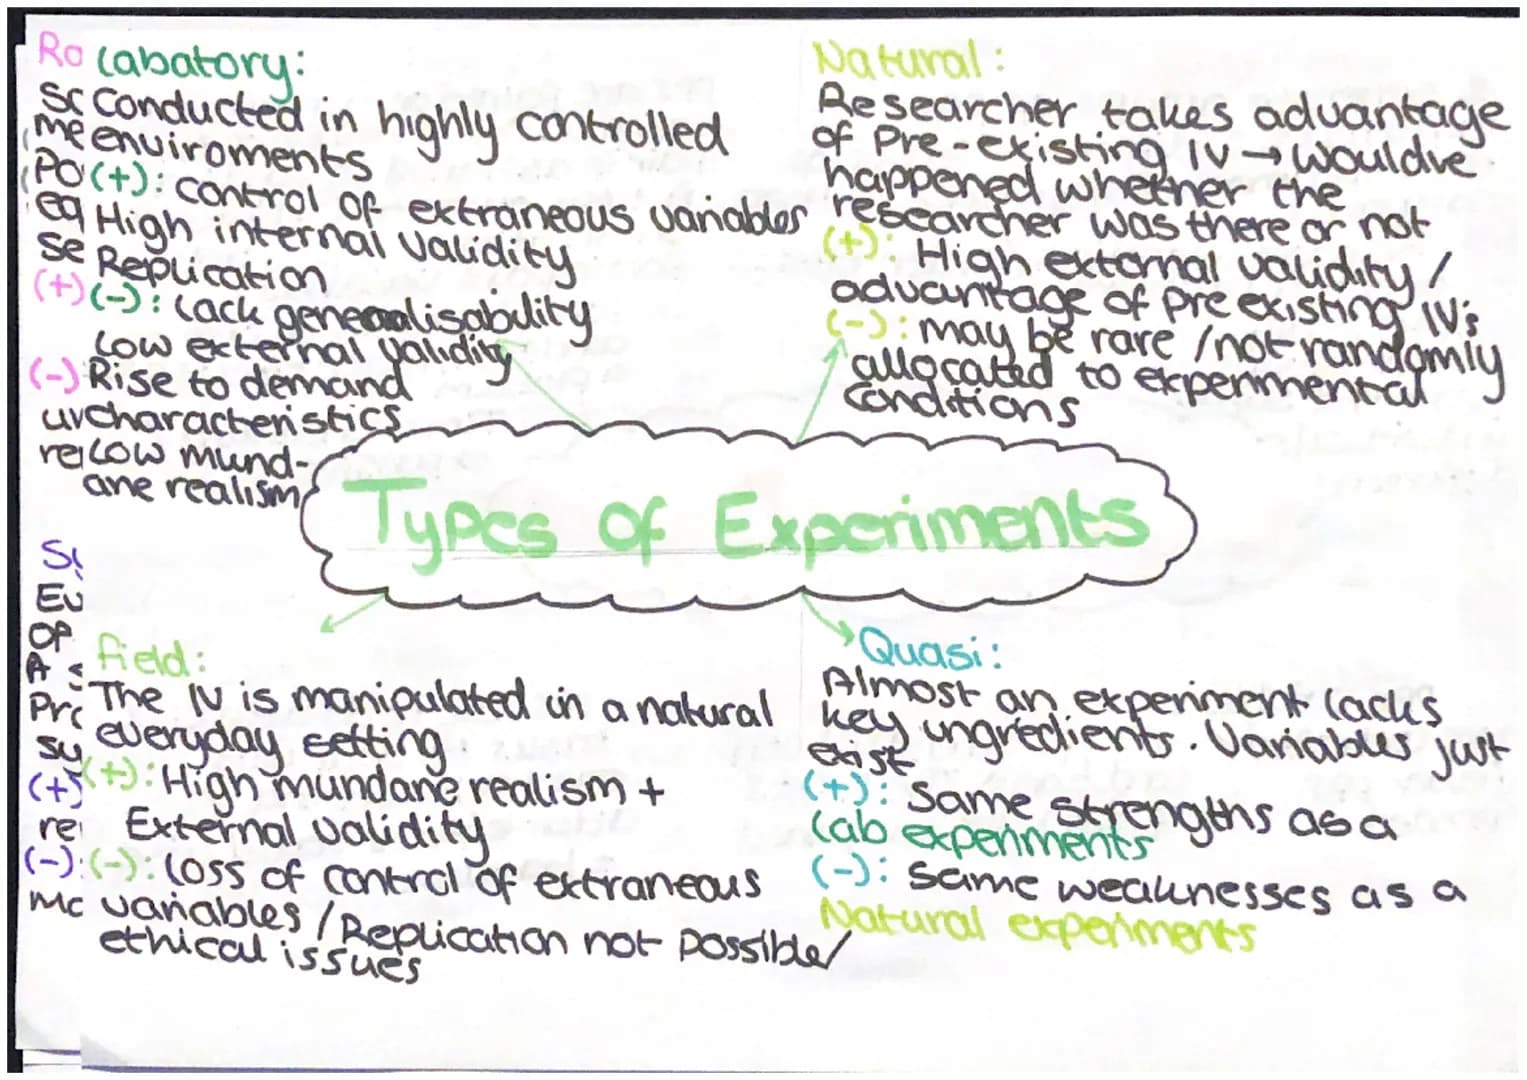 Labatory:
Conducted in highly controlled
enviroments
(+): control of extraneous variables
High internal validity
Replication
(-): Lack generalisability
Low external validity
Rise to demand
characteristics
Low mund-
ane realism
Natural:
Researcher takes advantage
of Pre-existing IV → would've
happened whether the
researcher was there or not
(+): High external validity /
advantage of pre existing IV's
(-): may be rare /not randomly
allocated to experimental
conditions
Types of Experiments
field:
The IV is manipulated in a natural
everyday setting
(+): High mundane realism +
External validity
(-): Loss of control of extraneous
variables / Replication not possible/
ethical issues
Quasi:
Almost an experiment lacks
key ingredients. Variables just
exist
(+): same strengths as a
Lab experiments
(-): same weaknesses as a
Natural experiments
Ro
sc
me
Po
eq
se
(+)
(-)
ur
rel
Ev
Of
A s
Pro
sy
(+)
re
(-):
Mc